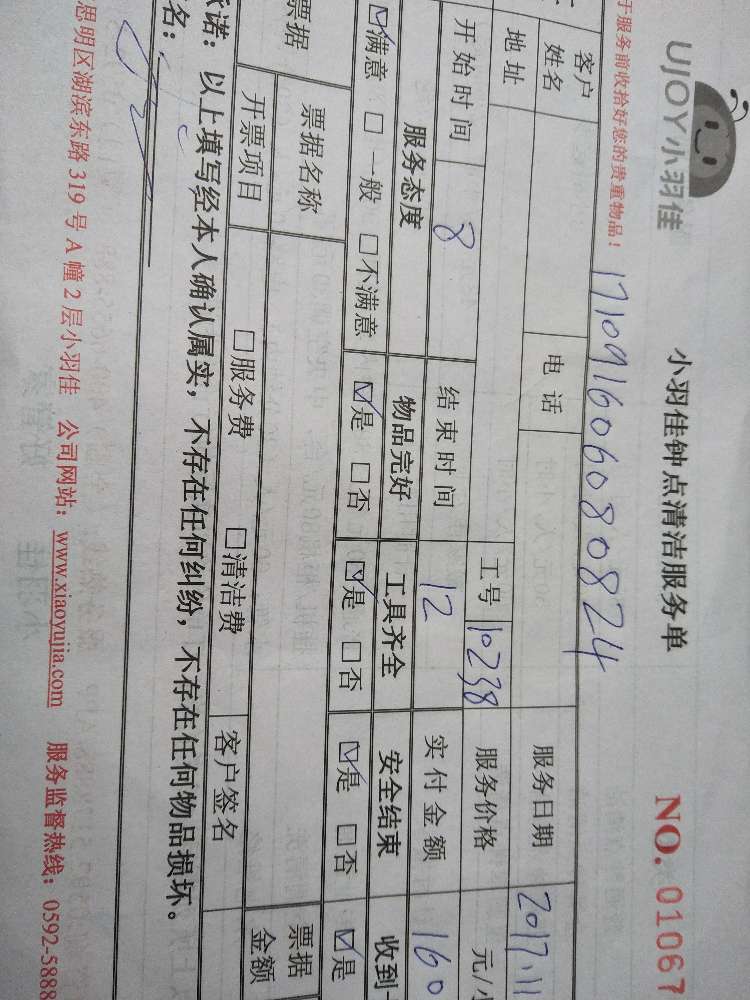 UJOY小羽佳
小羽佳钟点清洁服务单
NO. 01067
于服务前收拾好您的贵重物品！
17109160608 0824
客户姓名 电话 服务日期 2017.11
地址 工号 10238 服务价格 元/小
开始时间 8 结束时间 12 实付金额 160
服务态度 物品完好 工具齐全 安全结束 收到
☑满意 □一般 □不满意 ☑是 □否 ☑是 □否 ☑是 □否 ☑是
票据 票据名称 票据金额
开票项目 □服务费 □清洁费 客户签名
承诺：以上填写经本人确认属实，不存在任何纠纷，不存在任何物品损坏。
名：
思明区湖滨东路 319 号 A 幢 2 层小羽佳 公司网站：www.xiaoyujia.com 服务监督热线：0592-5888